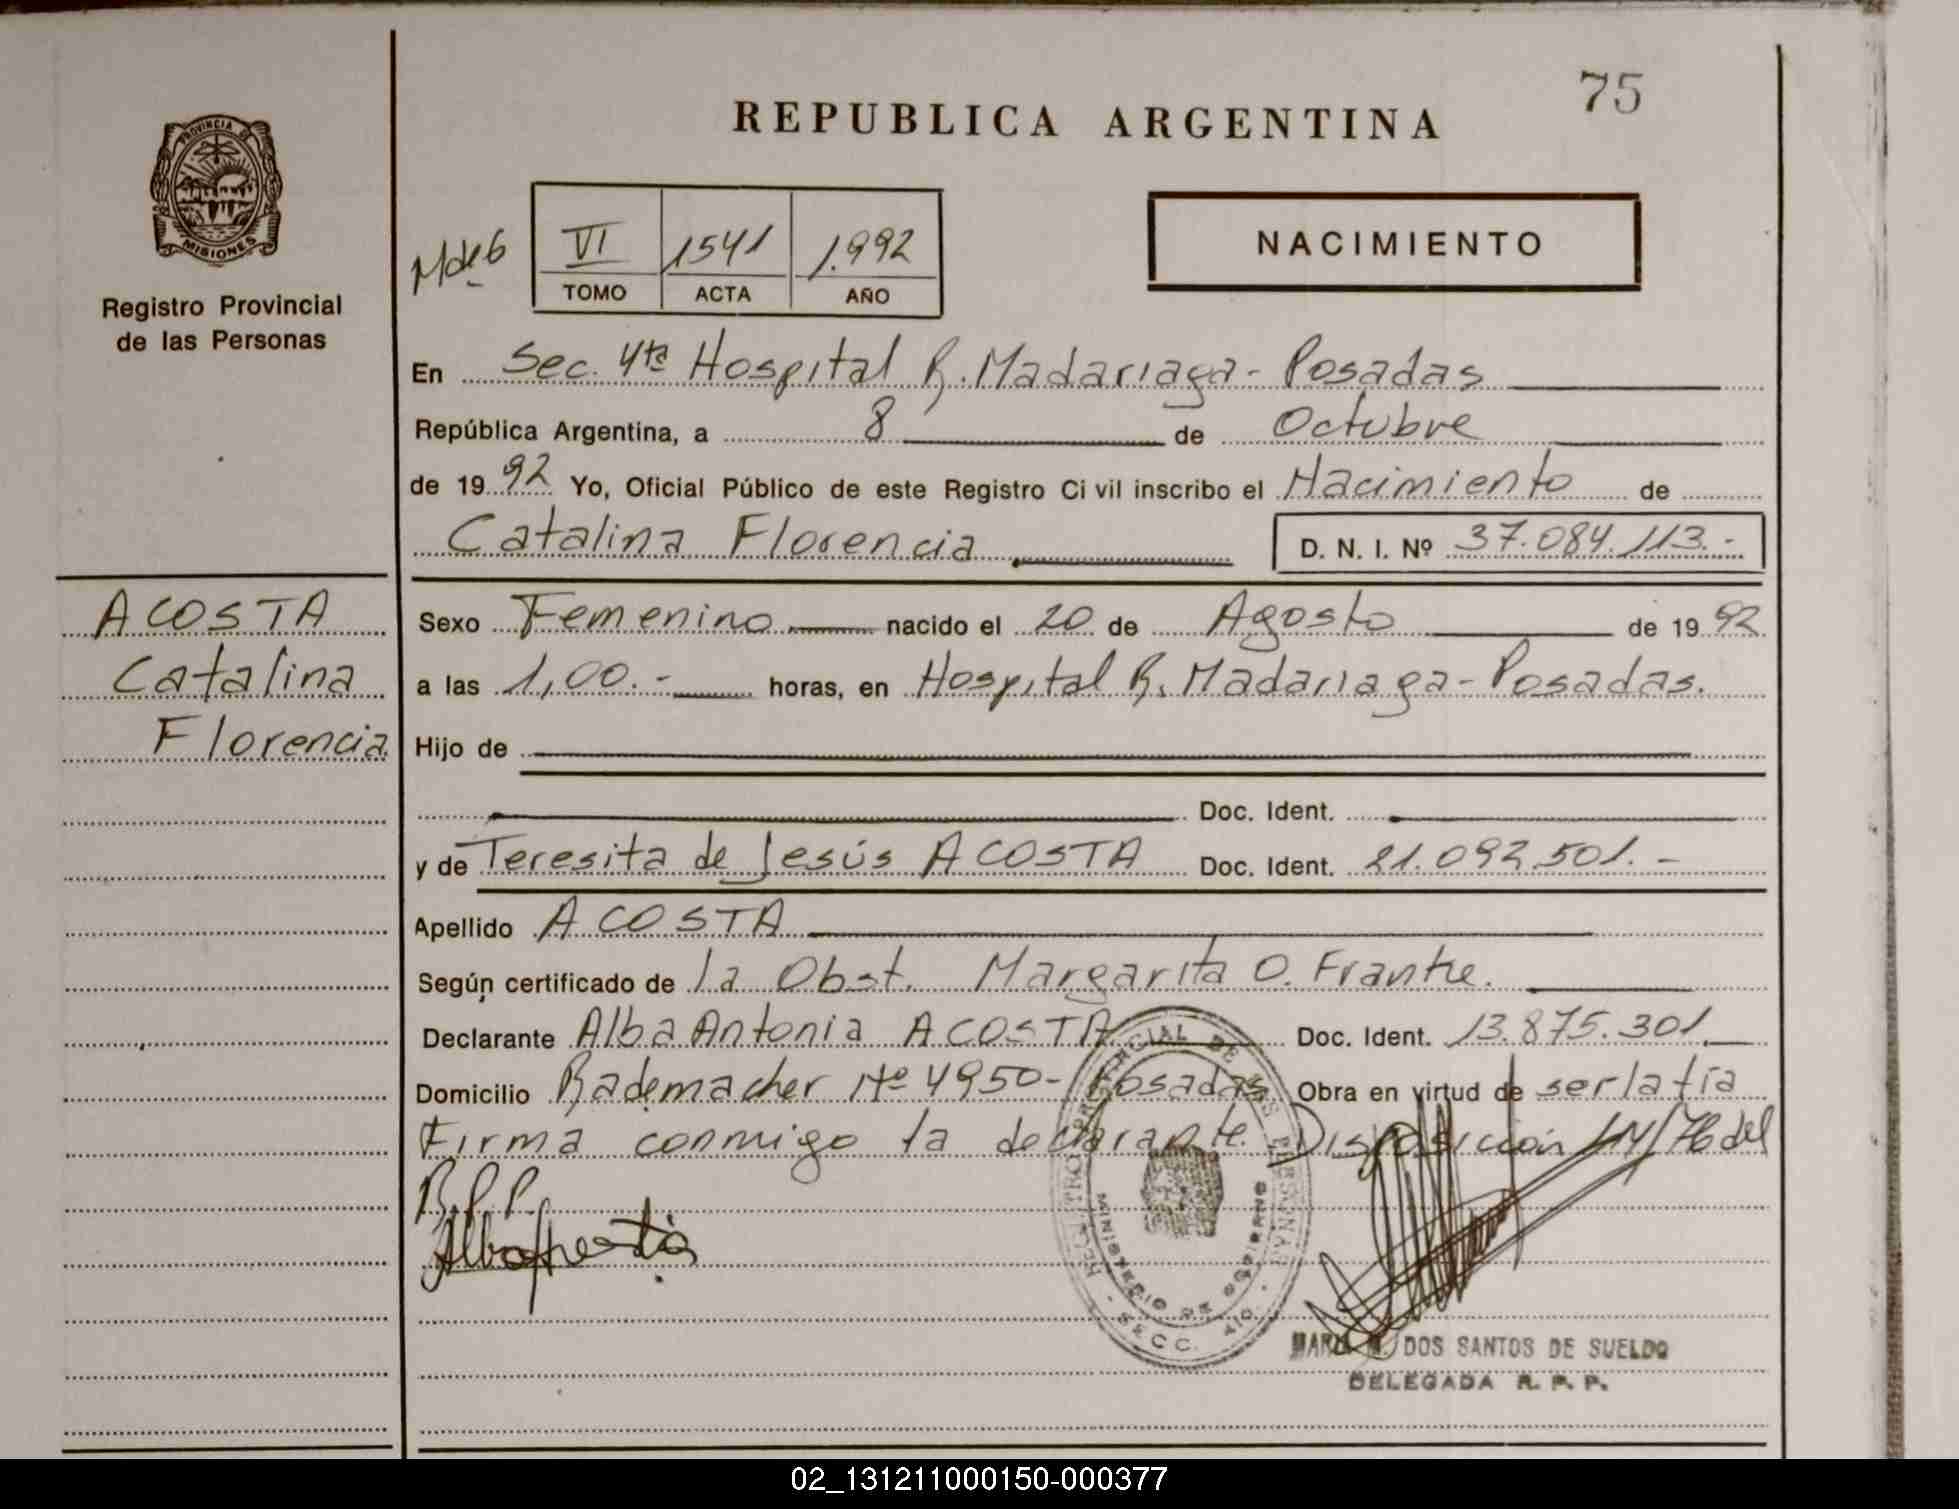 75
REPUBLICA ARGENTINA
PROVINCIA DE
MISIONES
Registro Provincial
de las Personas
VI 1541 1.992
TOMO ACTA AÑO
NACIMIENTO
En Sec. 4ta Hospital R. Madariaga - Posadas
República Argentina, a 8 de Octubre
de 1992 Yo, Oficial Público de este Registro Ci vil inscribo el Nacimiento de
Catalina Florencia D. N. I. Nº 37.084.113.-
ACOSTA
Catalina
Florencia
Sexo Femenino nacido el 20 de Agosto de 1992
a las 1,00.- horas, en Hospital R. Madariaga - Posadas.
Hijo de
Doc. Ident.
y de Teresita de Jesús ACOSTA Doc. Ident. 21.092.501.-
Apellido ACOSTA
Según certificado de la Obst. Margarita O. Franke.
Declarante Alba Antonia ACOSTA Doc. Ident. 13.875.301.
Domicilio Rademacher Nº 4950- Posadas Obra en virtud de ser la tía
Firma conmigo la declarante. Disposición 14/76 del
R.P.P.
REGISTRO PROVINCIAL DE LAS PERSONAS
MINISTERIO DE GOBIERNO
SECC. 4ta.
MARIA DOS SANTOS DE SUELDO
DELEGADA R. P. P.
02_131211000150-000377